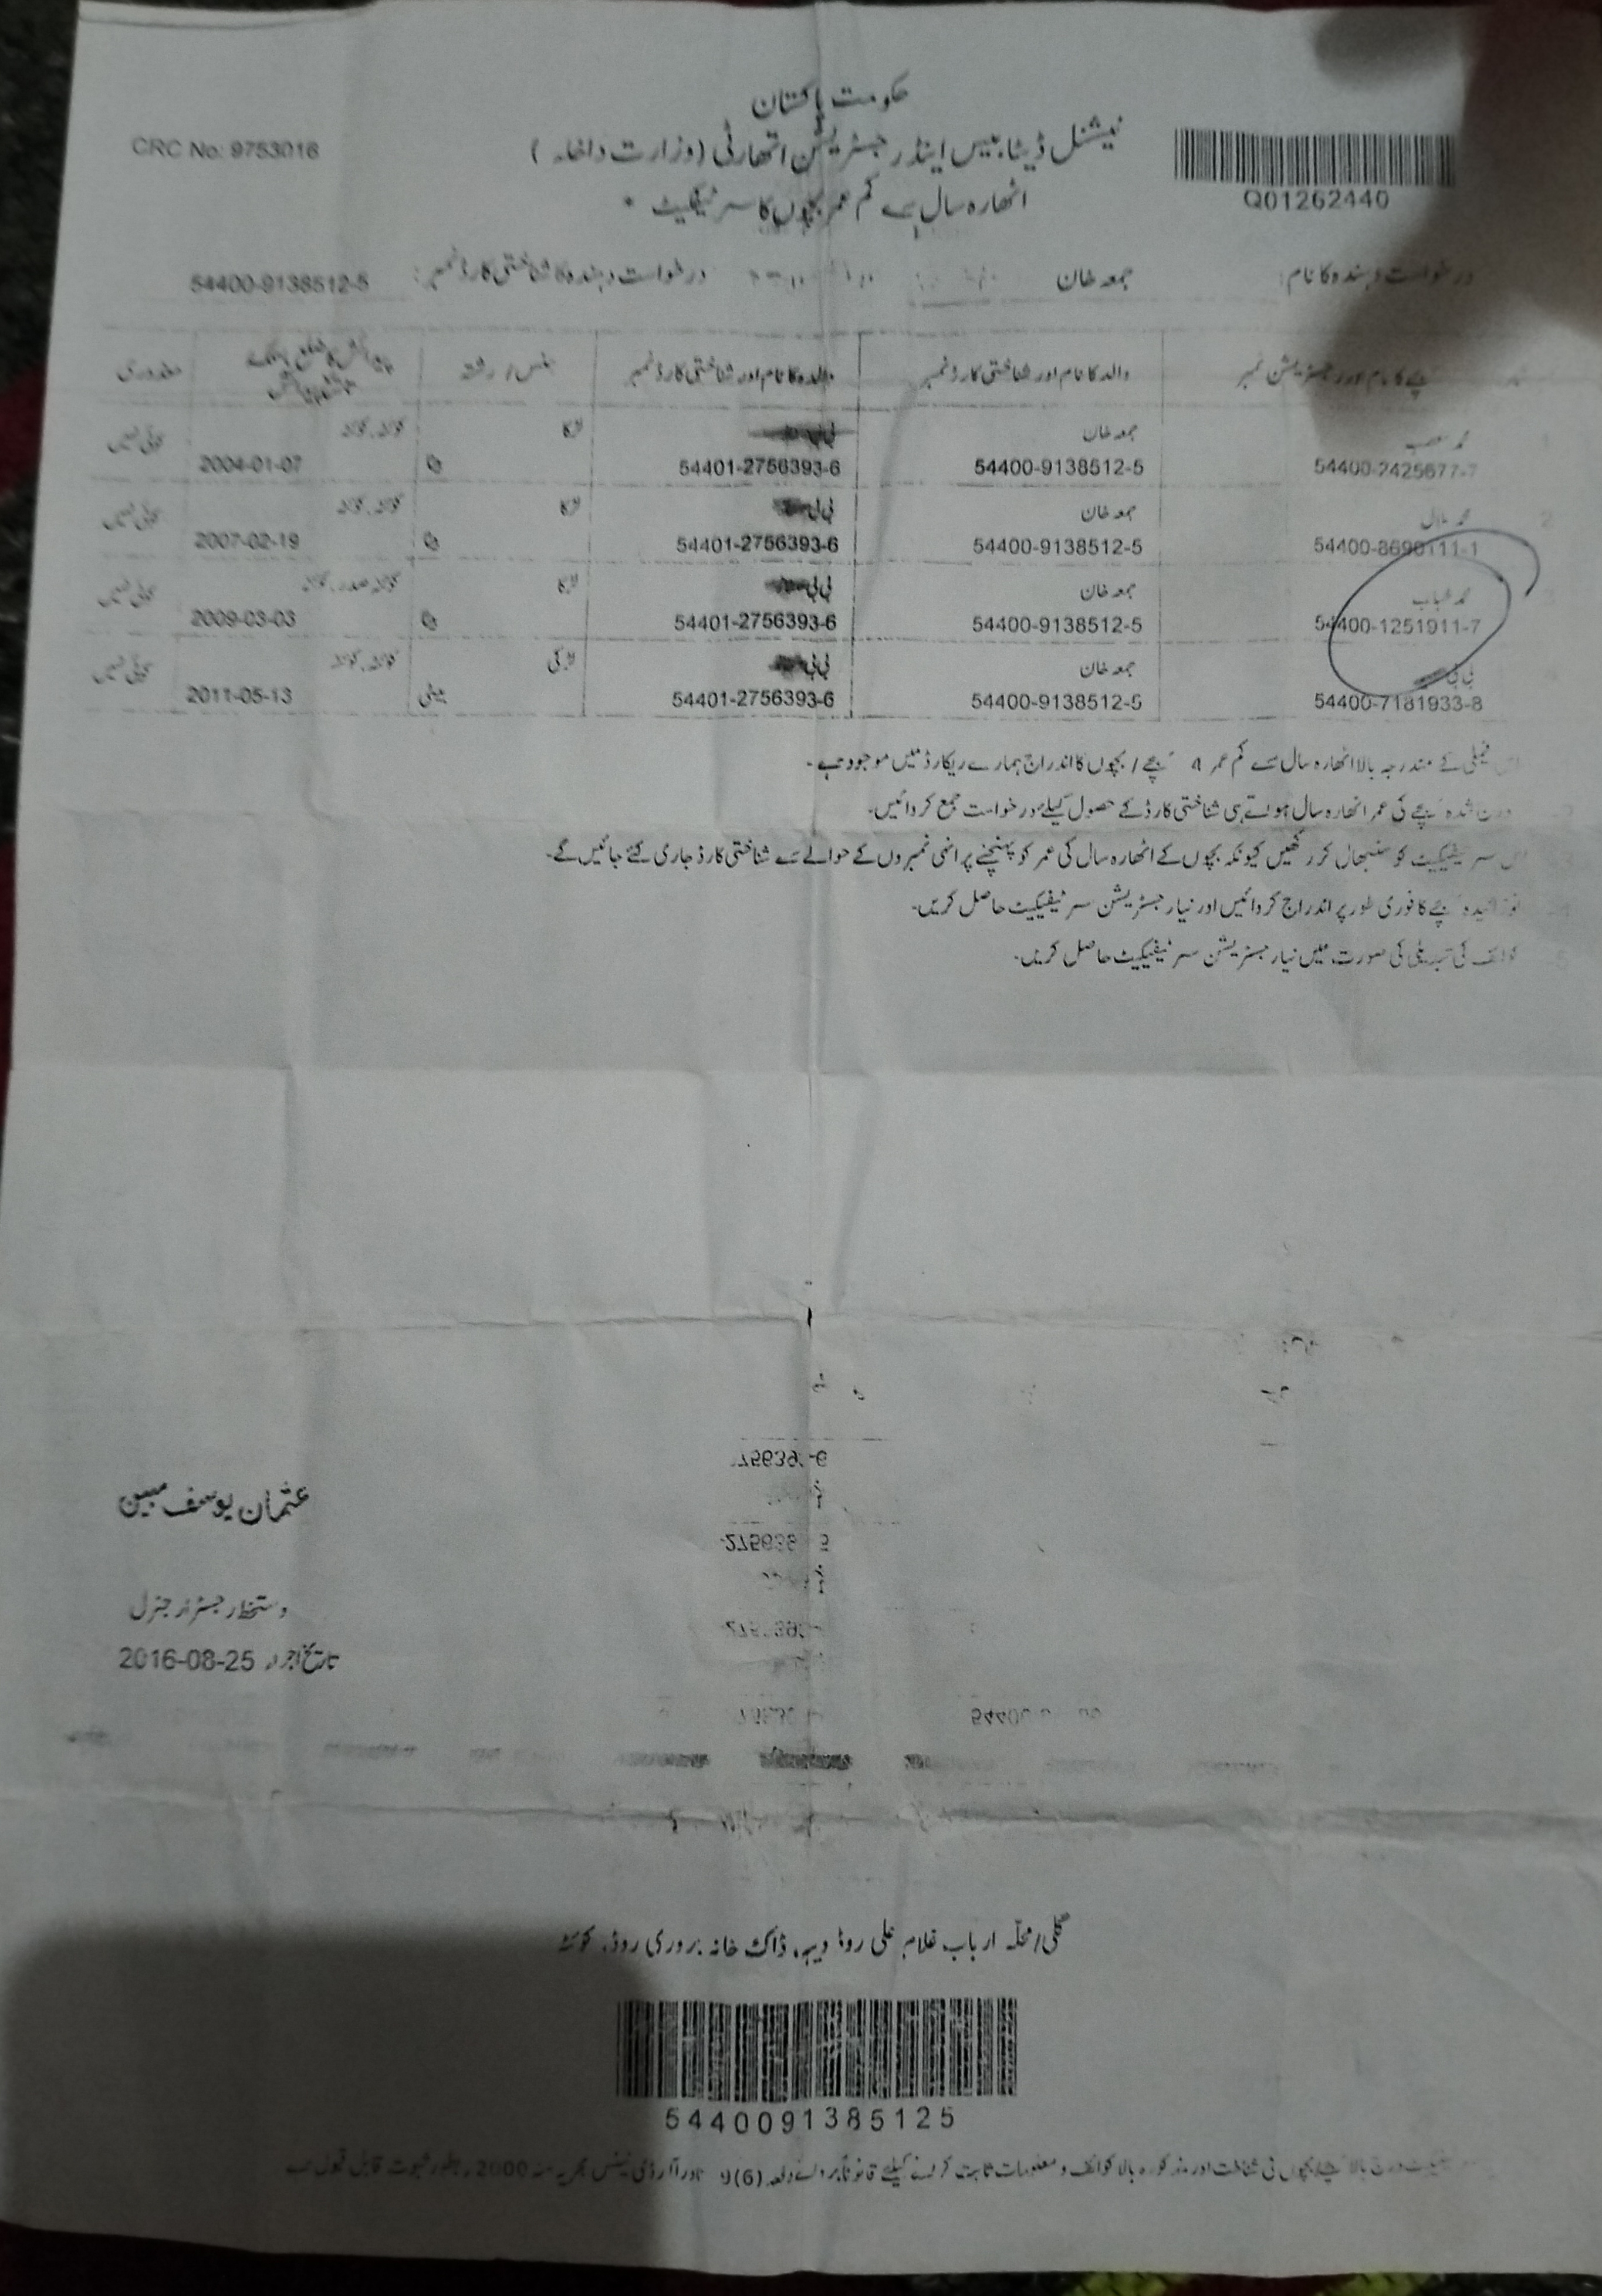 حکومت پاکستان
نیشنل ڈیٹابیس اینڈ رجسٹریشن اتھارٹی (وزارت داخلہ)
CRC No: 9753016
Q01262440
اٹھارہ سال سے کم عمر بچوں کا سرٹیفکیٹ
درخواست دہندہ کا نام: جمعہ خان درخواست دہندہ کا شناختی کارڈ نمبر: 54400-9138512-5
بچے کا نام اور رجسٹریشن نمبر والد کا نام اور شناختی کارڈ نمبر والدہ کا نام اور شناختی کارڈ نمبر جنس / رشتہ معذوری
محمد جمعہ خان بی بی لڑکا کوئٹہ، کوئٹہ کوئی نہیں
54400-2425677-7 54400-9138512-5 54401-2756393-6 بیٹا 2004-01-07
محمد بلال جمعہ خان بی بی لڑکا کوئٹہ، کوئٹہ کوئی نہیں
54400-8690111-1 54400-9138512-5 54401-2756393-6 بیٹا 2007-02-19
محمد جمعہ خان بی بی لڑکا کوئٹہ صدر، کوئٹہ کوئی نہیں
54400-1251911-7 54400-9138512-5 54401-2756393-6 بیٹا 2009-03-03
بی بی جمعہ خان بی بی لڑکی کوئٹہ، کوئٹہ کوئی نہیں
54400-7181933-8 54400-9138512-5 54401-2756393-6 بیٹی 2011-05-13
اس فیملی کے مندرجہ بالا اٹھارہ سال سے کم عمر 4 بچے / بچوں کا اندراج ہمارے ریکارڈ میں موجود ہے۔
درج شدہ بچے کی عمر اٹھارہ سال ہوتے ہی شناختی کارڈ کے حصول کیلئے درخواست جمع کروائیں۔
اس سرٹیفیکیٹ کو سنبھال کر رکھیں کیونکہ بچوں کے اٹھارہ سال کی عمر کو پہنچنے پر انہی نمبروں کے حوالے سے شناختی کارڈ جاری کئے جائیں گے۔
نوزائیدہ بچے کا فوری طور پر اندراج کروائیں اور نیا رجسٹریشن سرٹیفیکیٹ حاصل کریں۔
کوائف کی تبدیلی کی صورت میں نیا رجسٹریشن سرٹیفیکیٹ حاصل کریں۔
عثمان یوسف مبین
دستخط رجسٹرار جنرل
تاریخ اجراء 2016-08-25
گلی/محلّہ ارباب غلام علی روڈ دیبہ، ڈاک خانہ بروری روڈ، کوئٹہ
5440091385125
بچوں کی شناخت اور مذکورہ بالا کوائف و معلومات ثابت کرنے کیلئے قانوناً بروئے دفعہ 9(6) نادرا آرڈی نینس مجریہ سنہ 2000ء بطور ثبوت قابل قبول ہے